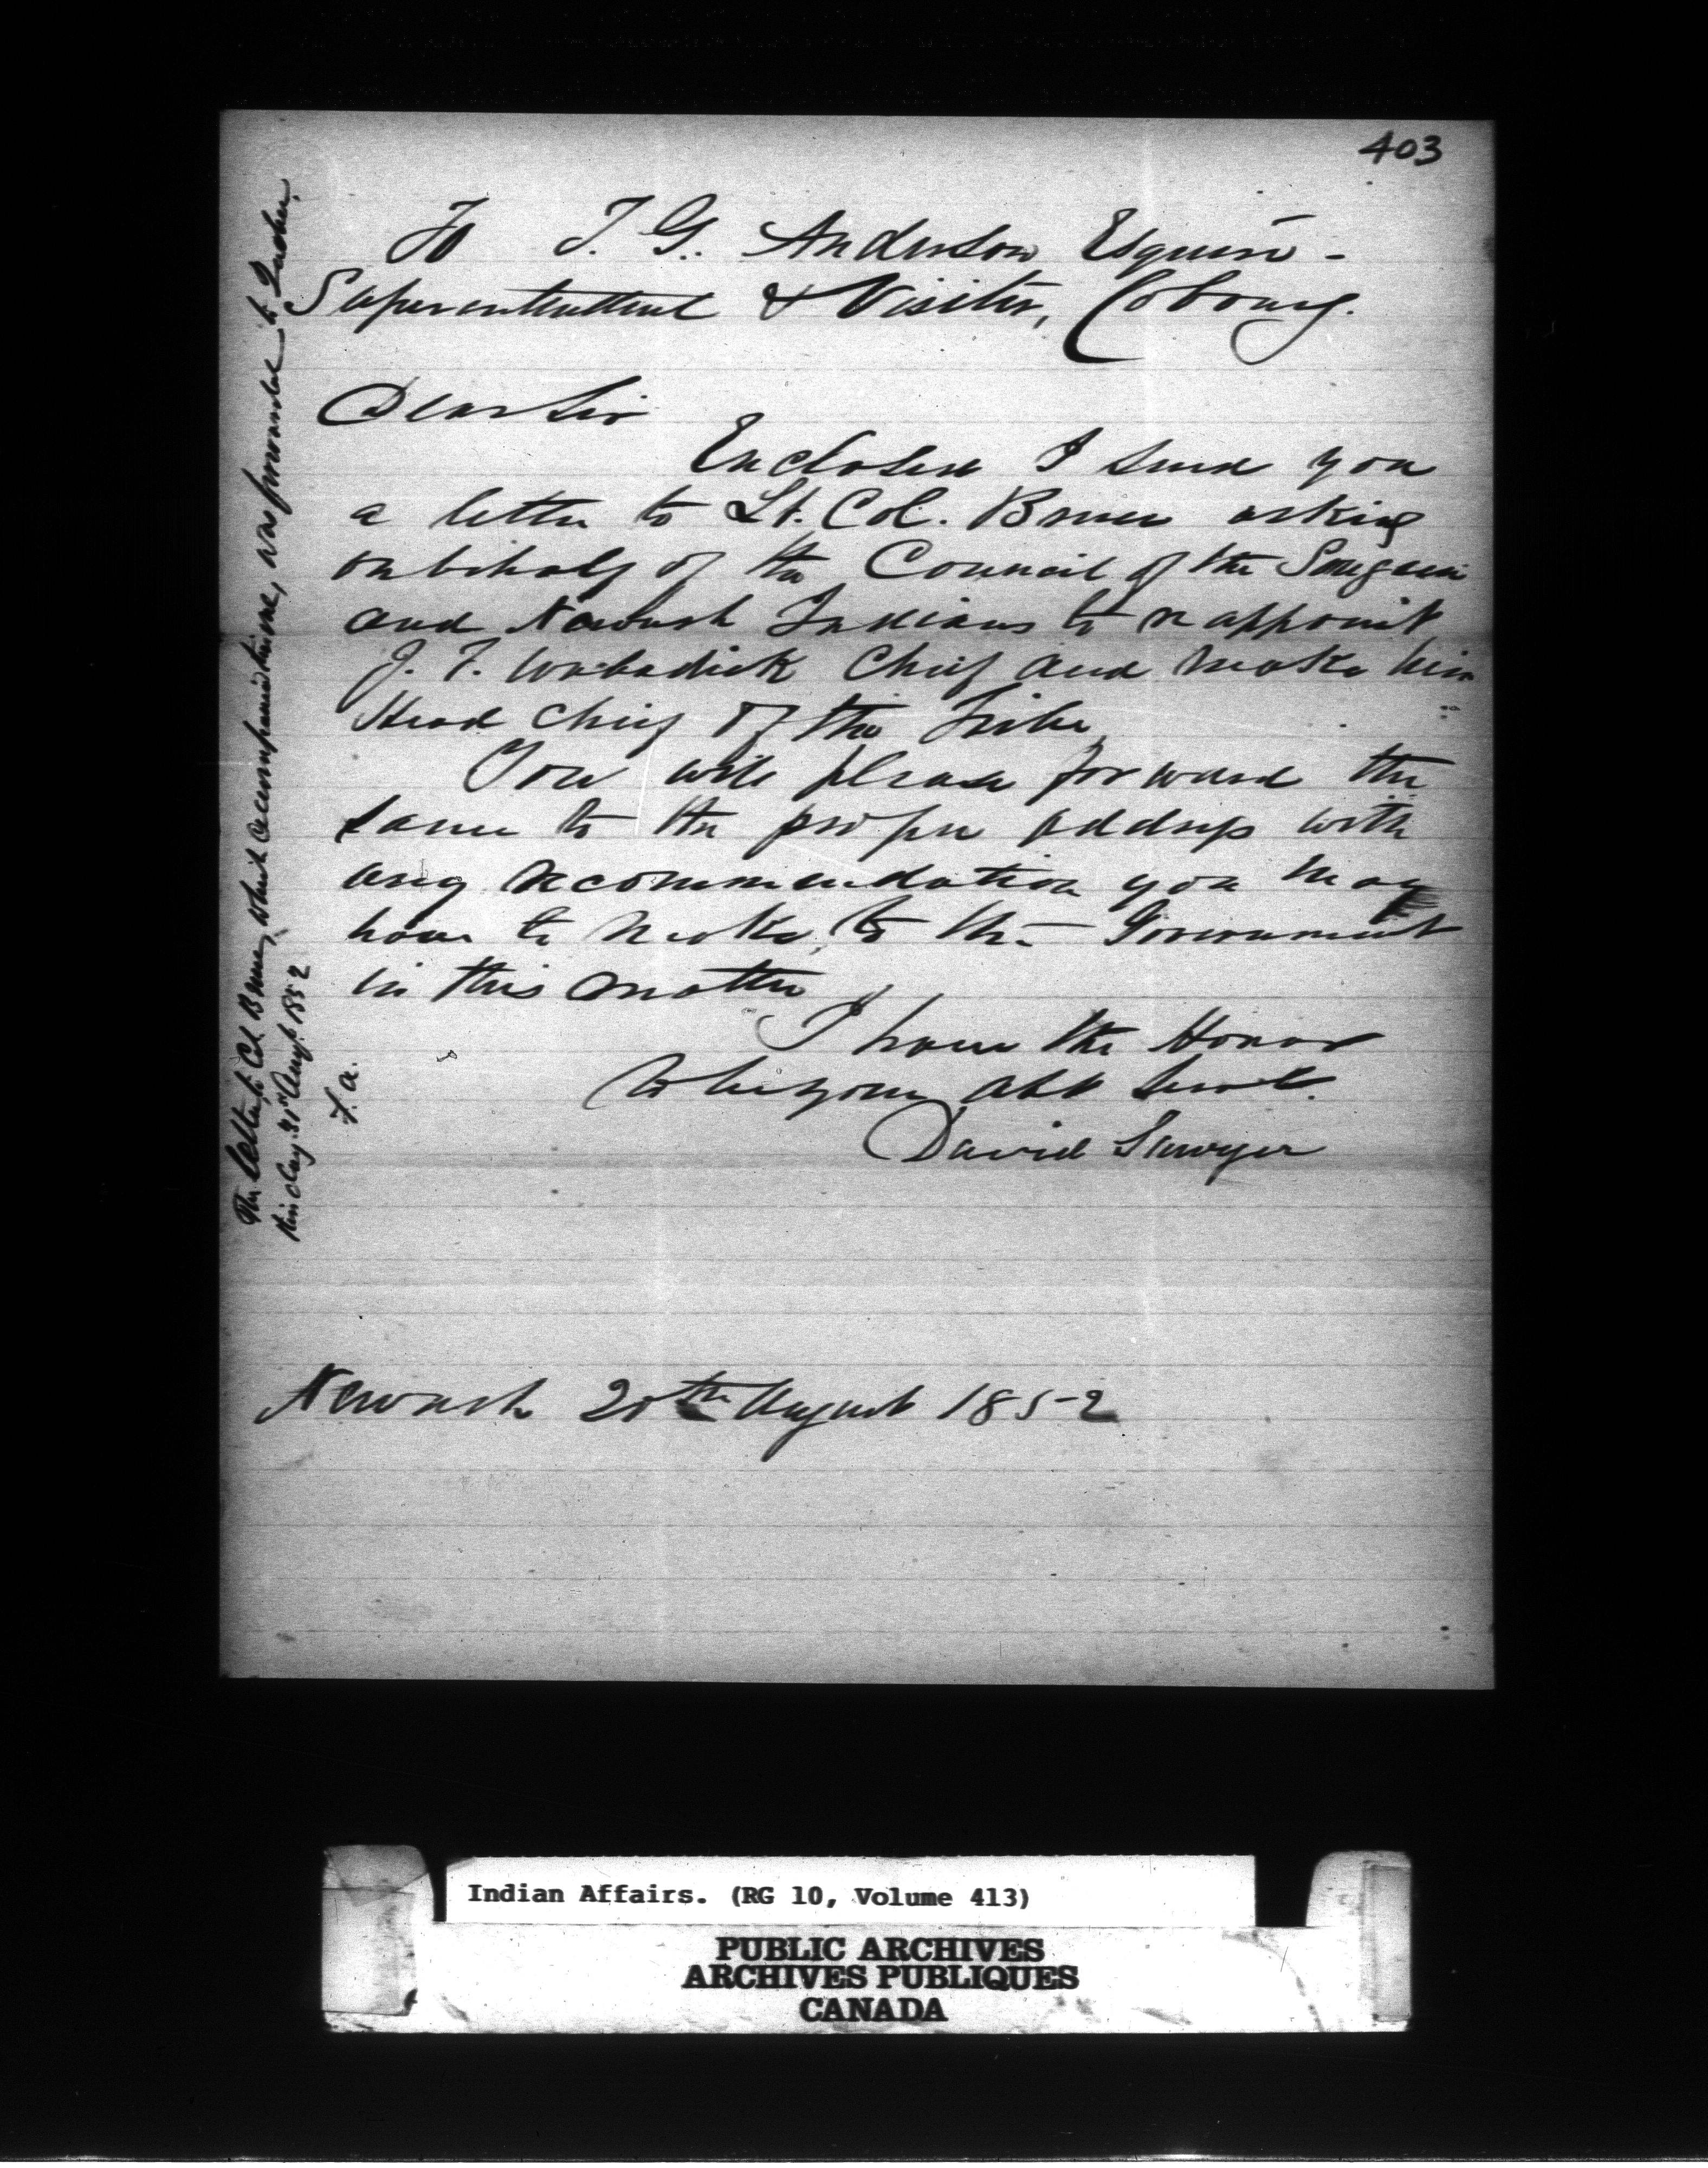 403
To T. G. Anderson Esquire -
Superintendent & Visiter, Cobourg.
Dear Sir
Enclosed I send you
a letter to Lt. Col. Bruce asking
on behalf of the Council of the Saugeen
and Newash Indians to reappoint
J. T. Wabadick Chief and make him
Head Chief of the Tribe
You will please forward the
same to the proper address with
any recommendation you may
have to make, to the Government
in this matter
I have the Honor
to be your obt Servt.
David Sawyer
Newash 20th August 1852
The letter to Col. Bruce, which accompanied this one, was forwarded to Quebec,
this day 31st Augt. 1852
T. a.
Indian Affairs. (RG 10, Volume 413)
PUBLIC ARCHIVES
ARCHIVES PUBLIQUES
CANADA